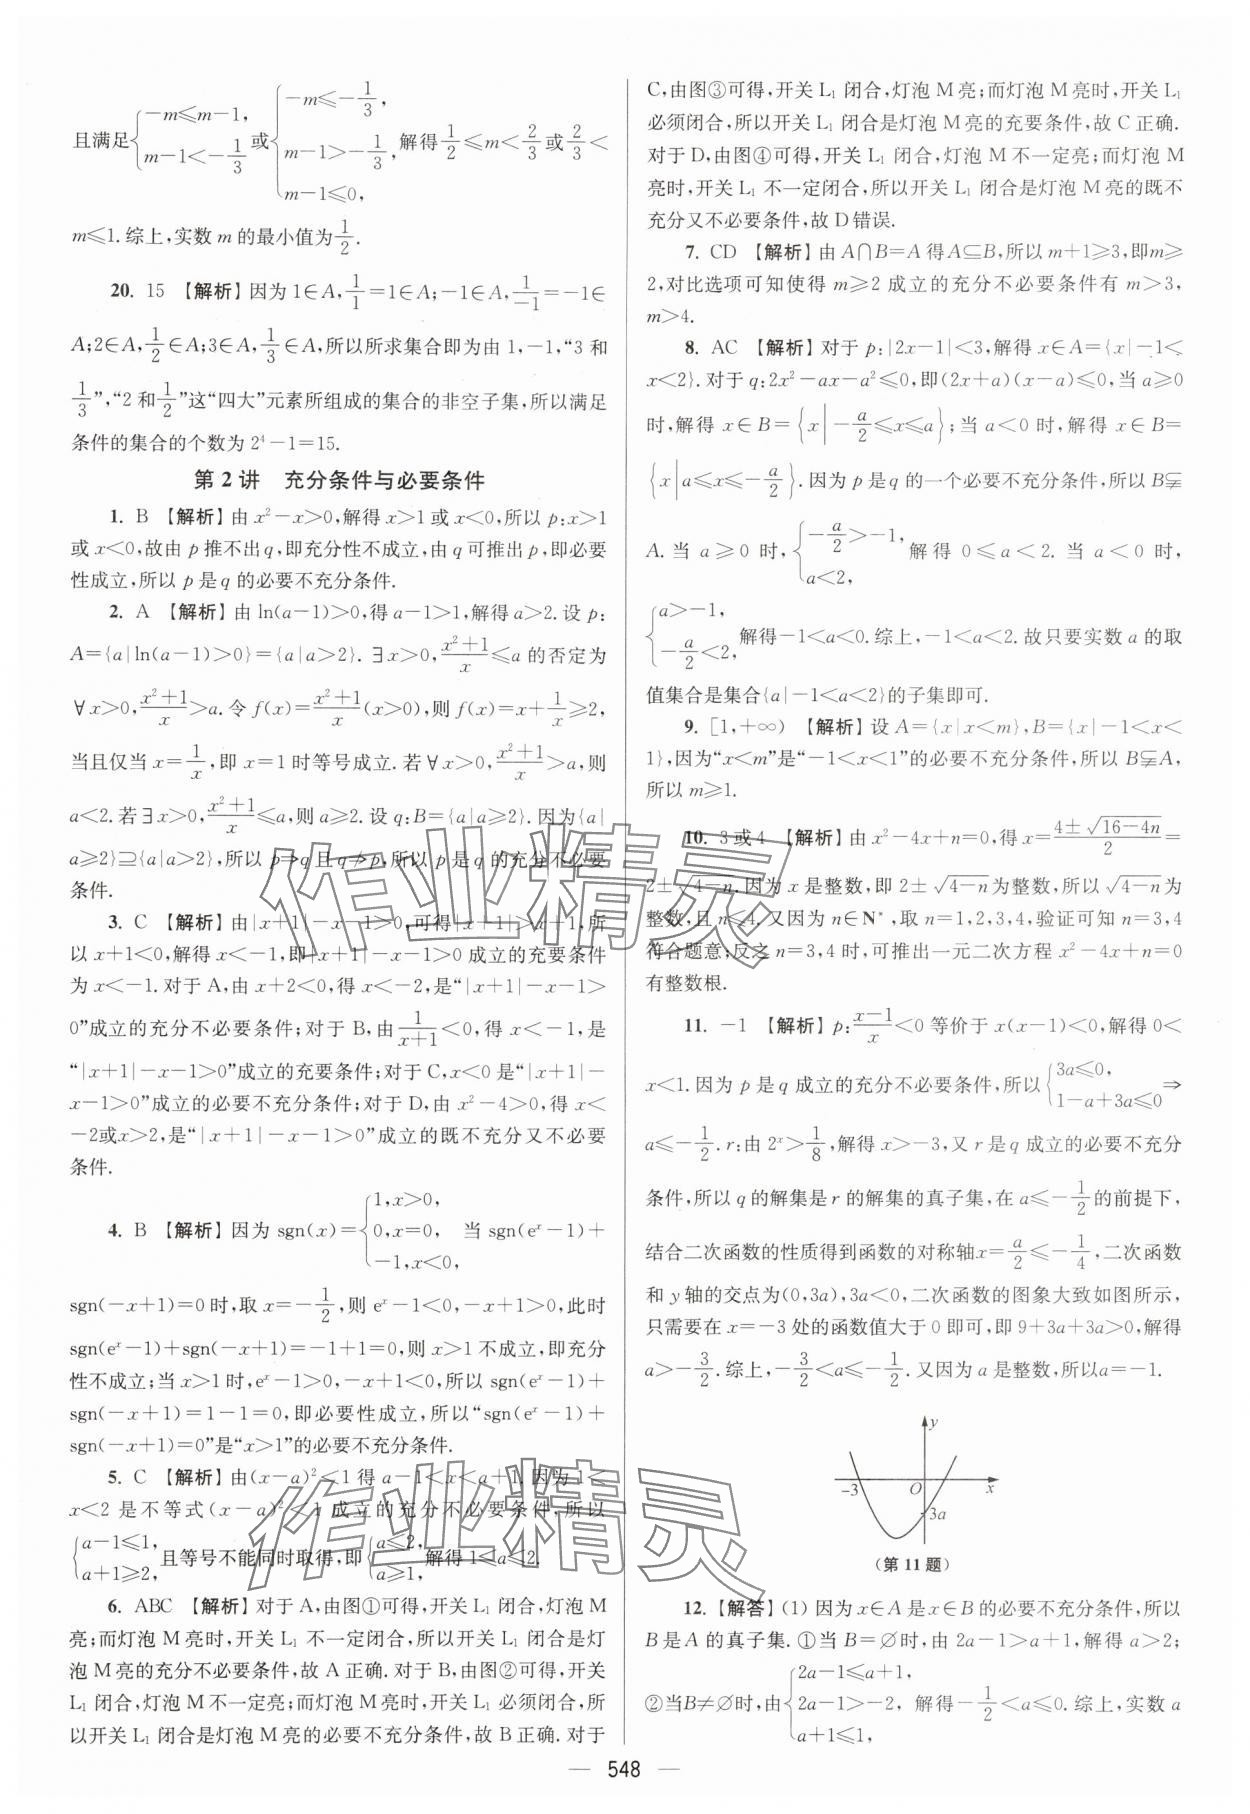 且满足{-m≤m-1, m-1<-1/3 或{-m≤-1/3, m-1>-1/3, m-1≤0, 解得1/2≤m<2/3或2/3<
m≤1.综上,实数m的最小值为1/2.
20. 15 【解析】因为1∈A,1/1=1∈A;-1∈A,1/-1=-1∈
A;2∈A,1/2∈A;3∈A,1/3∈A,所以所求集合即为由1,-1,“3和
1/3”,“2和1/2”这“四大”元素所组成的集合的非空子集,所以满足
条件的集合的个数为2⁴-1=15.
第2讲 充分条件与必要条件
1. B 【解析】由x²-x>0,解得x>1或x<0,所以p:x>1
或x<0,故由p推不出q,即充分性不成立,由q可推出p,即必要
性成立,所以p是q的必要不充分条件.
2. A 【解析】由ln(a-1)>0,得a-1>1,解得a>2.设p:
A={a|ln(a-1)>0}={a|a>2}.∃x>0,(x²+1)/x≤a的否定为
∀x>0,(x²+1)/x>a.令f(x)=(x²+1)/x(x>0),则f(x)=x+1/x≥2,
当且仅当x=1/x,即x=1时等号成立.若∀x>0,(x²+1)/x>a,则
a<2.若∃x>0,(x²+1)/x≤a,则a≥2.设q:B={a|a≥2}.因为{a|
a≥2}⊇{a|a>2},所以p⇒q且q⇏p,所以p是q的充分不必要
条件.
3. C 【解析】由|x+1|-x-1>0,可得|x+1|>x+1,所
以x+1<0,解得x<-1,即|x+1|-x-1>0成立的充要条件
为x<-1.对于A,由x+2<0,得x<-2,是“|x+1|-x-1>
0”成立的充分不必要条件;对于B,由1/(x+1)<0,得x<-1,是
“|x+1|-x-1>0”成立的充要条件;对于C,x<0是“|x+1|-
x-1>0”成立的必要不充分条件;对于D,由x²-4>0,得x<
-2或x>2,是“|x+1|-x-1>0”成立的既不充分又不必要
条件.
4. B 【解析】因为sgn(x)={1,x>0, 0,x=0, -1,x<0, 当sgn(eˣ-1)+
sgn(-x+1)=0时,取x=-1/2,则eˣ-1<0,-x+1>0,此时
sgn(eˣ-1)+sgn(-x+1)=-1+1=0,则x>1不成立,即充分
性不成立;当x>1时,eˣ-1>0,-x+1<0,所以sgn(eˣ-1)+
sgn(-x+1)=1-1=0,即必要性成立,所以“sgn(eˣ-1)+
sgn(-x+1)=0”是“x>1”的必要不充分条件.
5. C 【解析】由(x-a)²<1得a-1<x<a+1.因为1<
x<2是不等式(x-a)²<1成立的充分不必要条件,所以
{a-1≤1, a+1≥2, 且等号不能同时取得,即{a≤2, a≥1, 解得1≤a≤2.
6. ABC 【解析】对于A,由图①可得,开关L₁闭合,灯泡M
亮;而灯泡M亮时,开关L₁不一定闭合,所以开关L₁闭合是灯
泡M亮的充分不必要条件,故A正确.对于B,由图②可得,开关
L₁闭合,灯泡M不一定亮;而灯泡M亮时,开关L₁必须闭合,所
以开关L₁闭合是灯泡M亮的必要不充分条件,故B正确.对于
C,由图③可得,开关L₁闭合,灯泡M亮;而灯泡M亮时,开关L₁
必须闭合,所以开关L₁闭合是灯泡M亮的充要条件,故C正确.
对于D,由图④可得,开关L₁闭合,灯泡M不一定亮;而灯泡M
亮时,开关L₁不一定闭合,所以开关L₁闭合是灯泡M亮的既不
充分又不必要条件,故D错误.
7. CD 【解析】由A∩B=A得A⊆B,所以m+1≥3,即m≥
2,对比选项可知使得m≥2成立的充分不必要条件有m>3,
m>4.
8. AC 【解析】对于p:|2x-1|<3,解得x∈A={x|-1<
x<2}.对于q:2x²-ax-a²≤0,即(2x+a)(x-a)≤0,当a≥0
时,解得x∈B={x|-a/2≤x≤a};当a<0时,解得x∈B=
{x|a≤x≤-a/2}.因为p是q的一个必要不充分条件,所以B⫋
A.当a≥0时,{-a/2>-1, a<2, 解得0≤a<2.当a<0时,
{a>-1, -a/2<2, 解得-1<a<0.综上,-1<a<2.故只要实数a的取
值集合是集合{a|-1<a<2}的子集即可.
9. [1,+∞) 【解析】设A={x|x<m},B={x|-1<x<
1},因为“x<m”是“-1<x<1”的必要不充分条件,所以B⫋A,
所以m≥1.
10. 3或4 【解析】由x²-4x+n=0,得x=(4±√(16-4n))/2=
2±√(4-n).因为x是整数,即2±√(4-n)为整数,所以√(4-n)为
整数,且n≤4.又因为n∈N*,取n=1,2,3,4,验证可知n=3,4
符合题意;反之n=3,4时,可推出一元二次方程x²-4x+n=0
有整数根.
11. -1 【解析】p:(x-1)/x<0等价于x(x-1)<0,解得0<
x<1.因为p是q成立的充分不必要条件,所以{3a≤0, 1-a+3a≤0 ⇒
a≤-1/2.r:由2ˣ>1/8,解得x>-3,又r是q成立的必要不充分
条件,所以q的解集是r的解集的真子集,在a≤-1/2的前提下,
结合二次函数的性质得到函数的对称轴x=a/2≤-1/4,二次函数
和y轴的交点为(0,3a),3a<0,二次函数的图象大致如图所示,
只需要在x=-3处的函数值大于0即可,即9+3a+3a>0,解得
a>-3/2.综上,-3/2<a≤-1/2.又因为a是整数,所以a=-1.
y
-3 O x
3a
(第11题)
12.【解答】(1) 因为x∈A是x∈B的必要不充分条件,所以
B是A的真子集.①当B=∅时,由2a-1>a+1,解得a>2;
②当B≠∅时,由{2a-1≤a+1, 2a-1>-2, a+1≤1, 解得-1/2<a≤0.综上,实数a
— 548 —
作业精灵
作业精灵